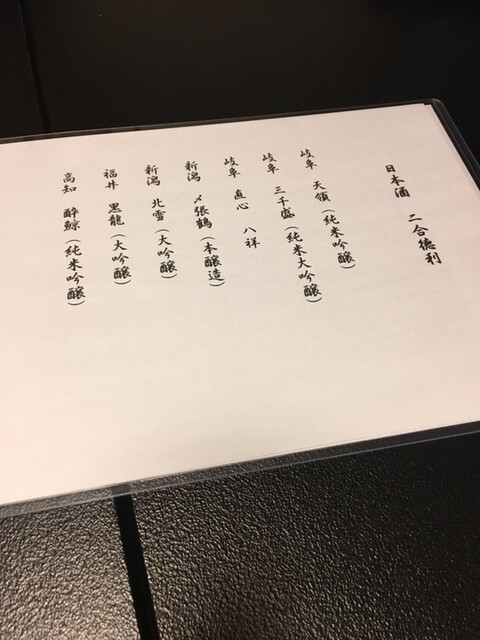 日本酒 二合徳利
岐阜 天領(純米吟醸)
岐阜 三千盛(純米大吟醸)
岐阜 直心 八祥
新潟 〆張鶴(本醸造)
新潟 北雪(大吟醸)
福井 黒龍(大吟醸)
高知 酔鯨(純米吟醸)